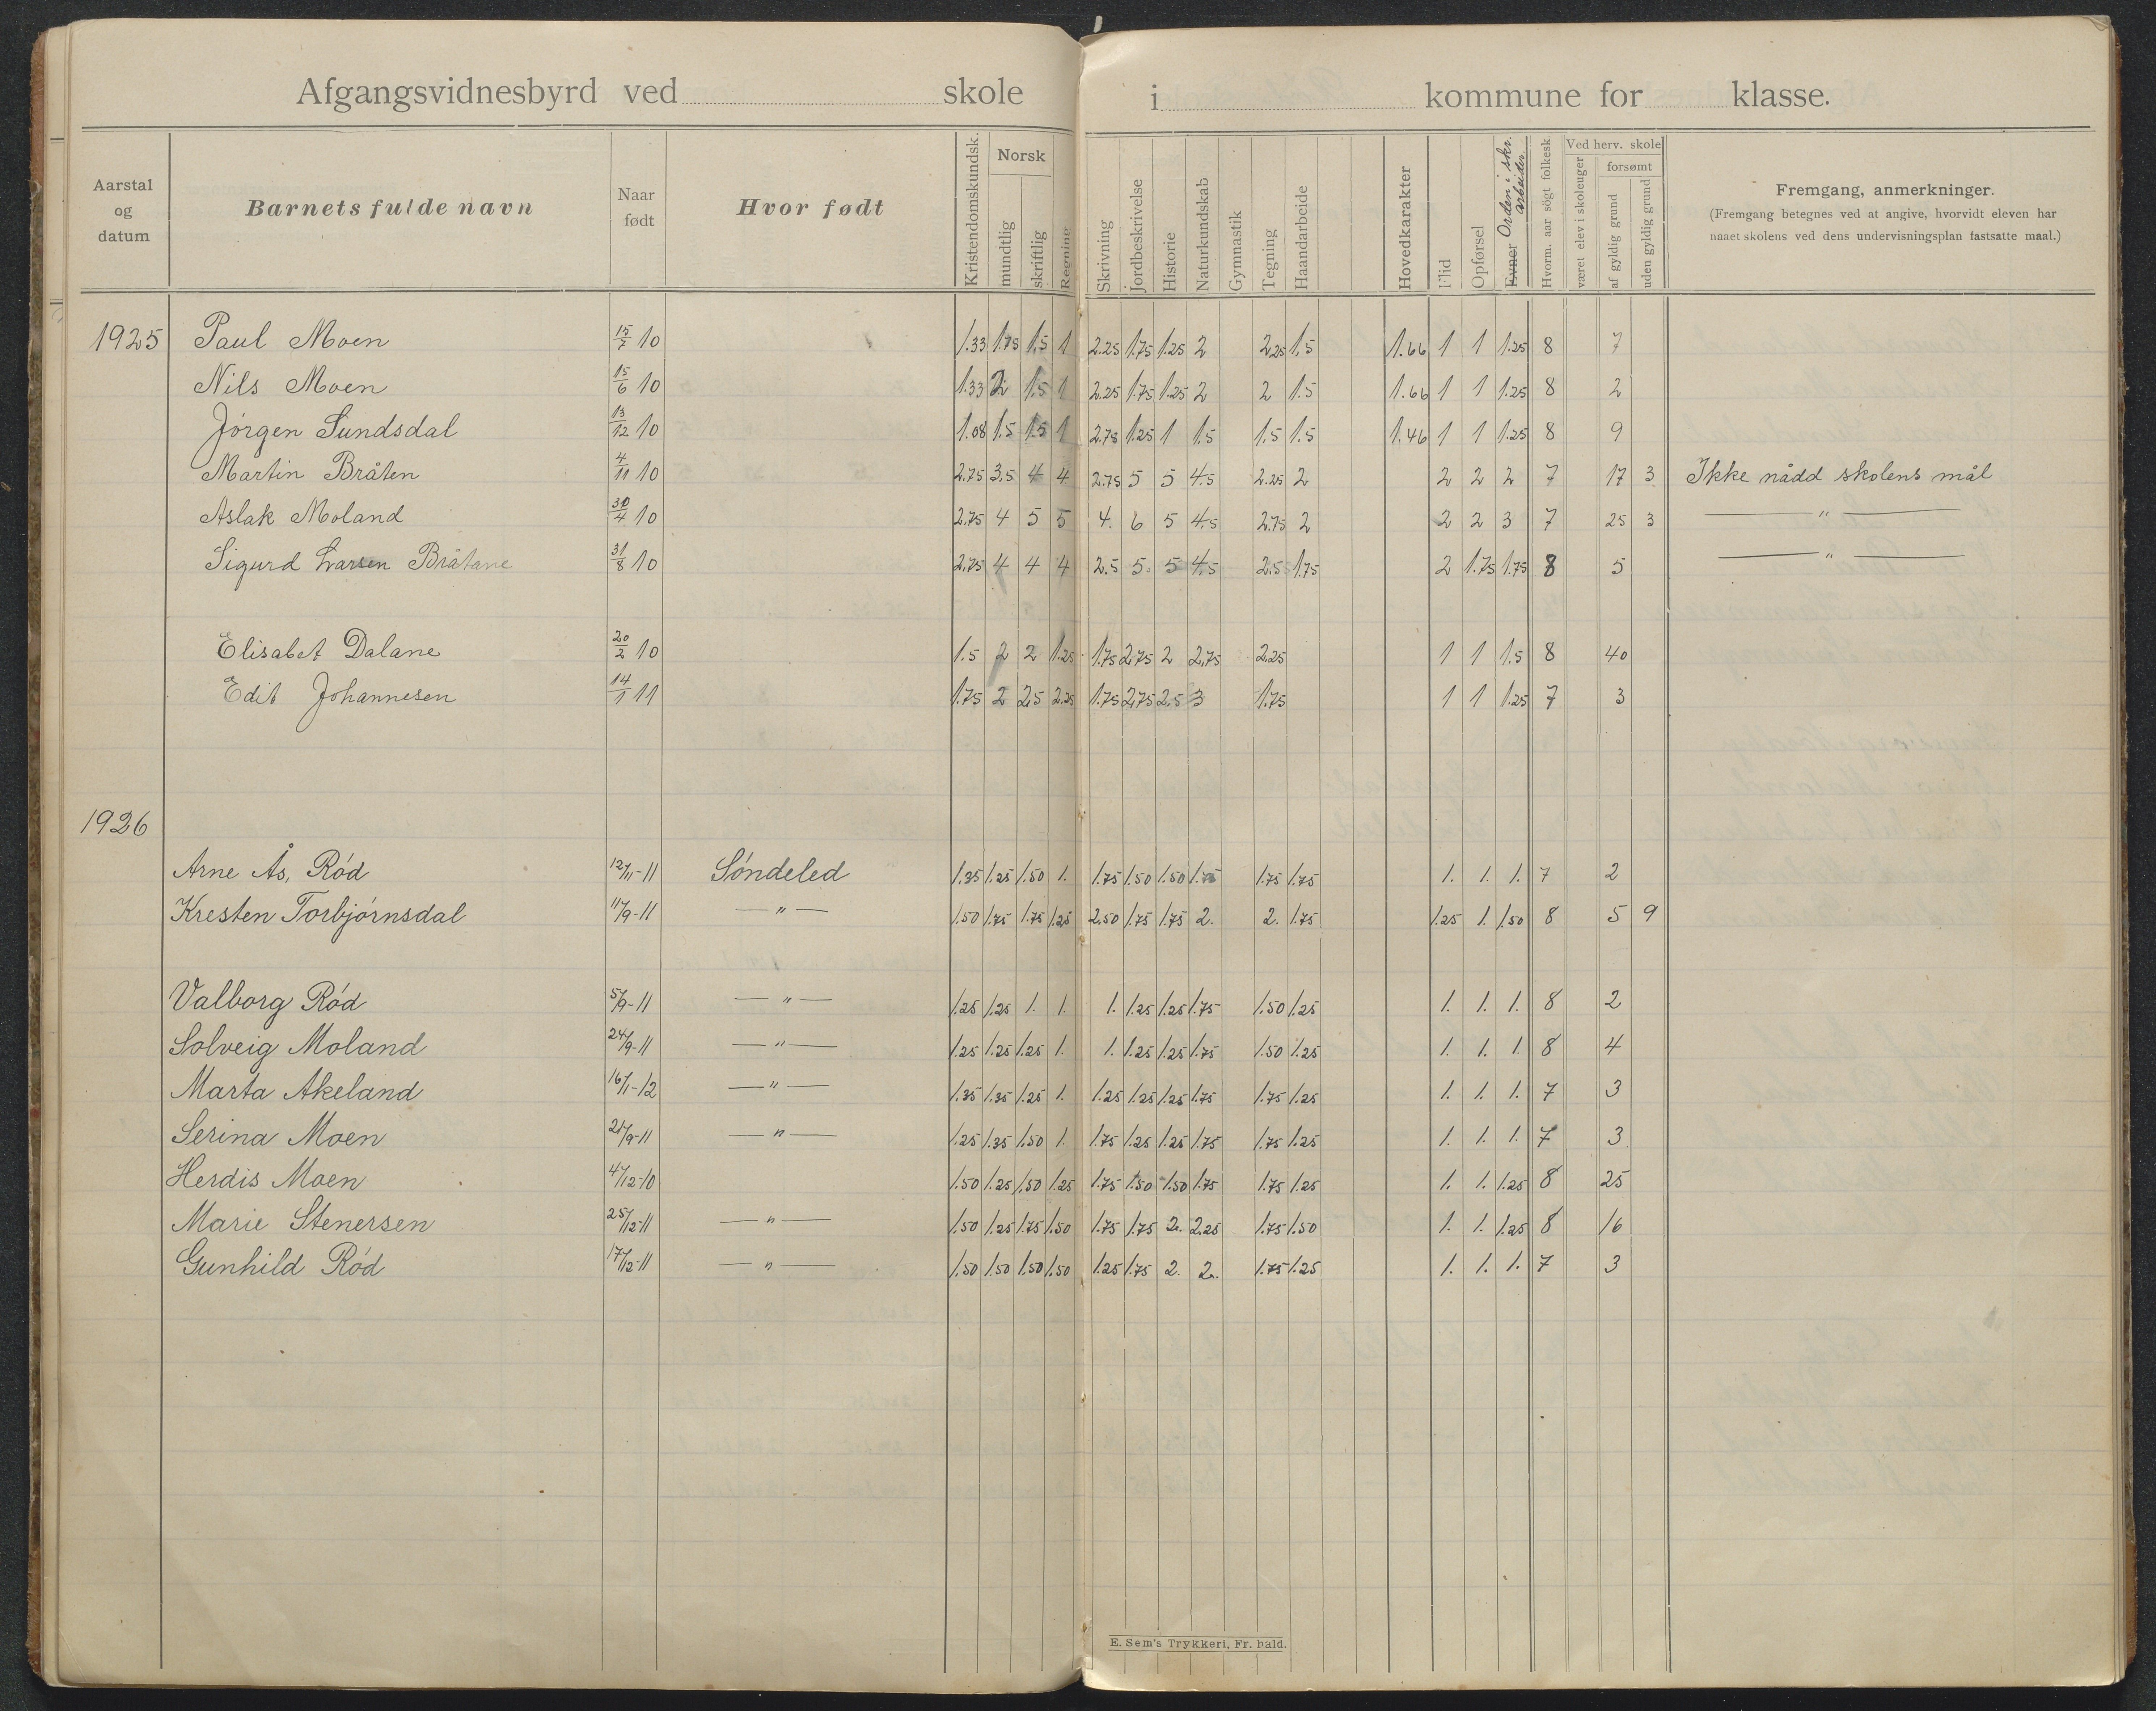 Afgangsvidnesbyrd ved skole i kommune for klasse.
Aarstal og datum | Barnets fulde navn | Naar født | Hvor født | Kristendomskundsk. | Norsk mundtlig | skriftlig | Regning | Skrivning | Jordbeskrivelse | Historie | Naturkundskab | Gymnastik | Tegning | Haandarbeide | Hovedkarakter | Flid | Opførsel | Evner Orden i skr. arbeider. | Hvorm. aar søgt folkesk | Ved herv. skole | været elev i skoleuger | forsømt | af gyldig grund | uden gyldig grund | Fremgang, anmerkninger.
(Fremgang betegnes ved at angive, hvorvidt eleven har
naaet skolens ved dens undervisningsplan fastsatte maal.)
1925 Paul Moen 15/7 10 1.33 1.75 1.5 1 2.25 1.75 1.25 2 2.25 1.5 1.66 1 1 1.25 8 7
Nils Moen 15/6 10 1.33 2 1.5 1 2.25 1.75 1.25 2 2 1.5 1.66 1 1 1.25 8 2
Jörgen Sundsdal 13/12 10 1.08 1.5 1.5 1 2.75 1.25 1 1.5 1.5 1.5 1.46 1 1 1.25 8 9
Martin Bråten 4/11 10 2.75 3.5 4 4 2.75 5 5 4.5 2.25 2 2 2 2 7 17 3 Ikke nådd skolens mål
Aslak Moland 30/4 10 2.75 4 5 5 4. 6 5 4.5 2.75 2 2 2 3 7 25 3 — " —
Sigurd Larsen Bråtane 31/8 10 2.75 4 4 4 2.5 5. 5 4.5 2.5 1.75 2 1.75 1.75 8 5 — " —
Elisabet Dalane 20/2 10 1.5 2 2 1.25 1.75 2.75 2 2.75 2.25 1 1 1.5 8 40
Edit Johannesen 14/1 11 1.75 2 2.5 2.25 1.75 2.75 2.5 3 1.75 1 1 1.25 7 3
1926
Arne Ås, Röd 12/11-11 Söndeled 1.35 1.25 1.50 1. 1.75 1.50 1.50 1.75 1.75 1.75 1. 1. 1. 7 2
Kresten Torbjörnsdal 11/9-11 — " — 1.50 1.75 1.75 1.25 2.50 1.75 1.75 2. 2. 1.75 1.25 1. 1.50 8 5 9
Valborg Röd 5/9-11 — " — 1.25 1.25 1. 1. 1. 1.25 1.25 1.75 1.50 1.25 1. 1. 1. 8 2
Solveig Moland 24/9-11 — " — 1.25 1.25 1.25 1. 1. 1.25 1.25 1.75 1.50 1.25 1. 1. 1. 8 4
Marta Akeland 16/1-12 — " — 1.35 1.35 1.25 1. 1.25 1.25 1.25 1.75 1.75 1.25 1. 1. 1. 7 3
Serina Moen 21/9-11 — " — 1.25 1.35 1.50 1. 1.75 1.25 1.25 1.75 1.75 1.25 1. 1. 1. 7 3
Herdis Moen 4/12-10 1.50 1.25 1.50 1.25 1.75 1.50 1.50 1.75 1.75 1.25 1. 1. 1.25 8 25
Marie Stenersen 25/12-11 — " — 1.50 1.25 1.75 1.50 1.75 1.75 2. 2.25 1.75 1.50 1. 1. 1.25 8 16
Gunhild Röd 17/12-11 — " — 1.50 1.50 1.50 1.50 1.25 1.75 2. 2. 1.75 1.25 1. 1. 1. 7 3
E. Sem's Trykkeri, Fr. hald.